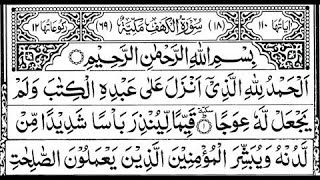 اٰيَاتُهَا ١١٠ (١٨) سُوْرَةُ الْكَهْفِ مَكِّيَّةٌ (٦٩) رُكُوْعَاتُهَا ١٢
بِسْمِ اللّٰهِ الرَّحْمٰنِ الرَّحِيْمِ
اَلْحَمْدُ لِلّٰهِ الَّذِيْۤ اَنْزَلَ عَلٰى عَبْدِهِ الْكِتٰبَ وَلَمْ
يَجْعَلْ لَّهٗ عِوَجًا ۝١ قَيِّمًا لِّيُنْذِرَ بَاْسًا شَدِيْدًا مِّنْ
لَّدُنْهُ وَيُبَشِّرَ الْمُؤْمِنِيْنَ الَّذِيْنَ يَعْمَلُوْنَ الصّٰلِحٰتِ